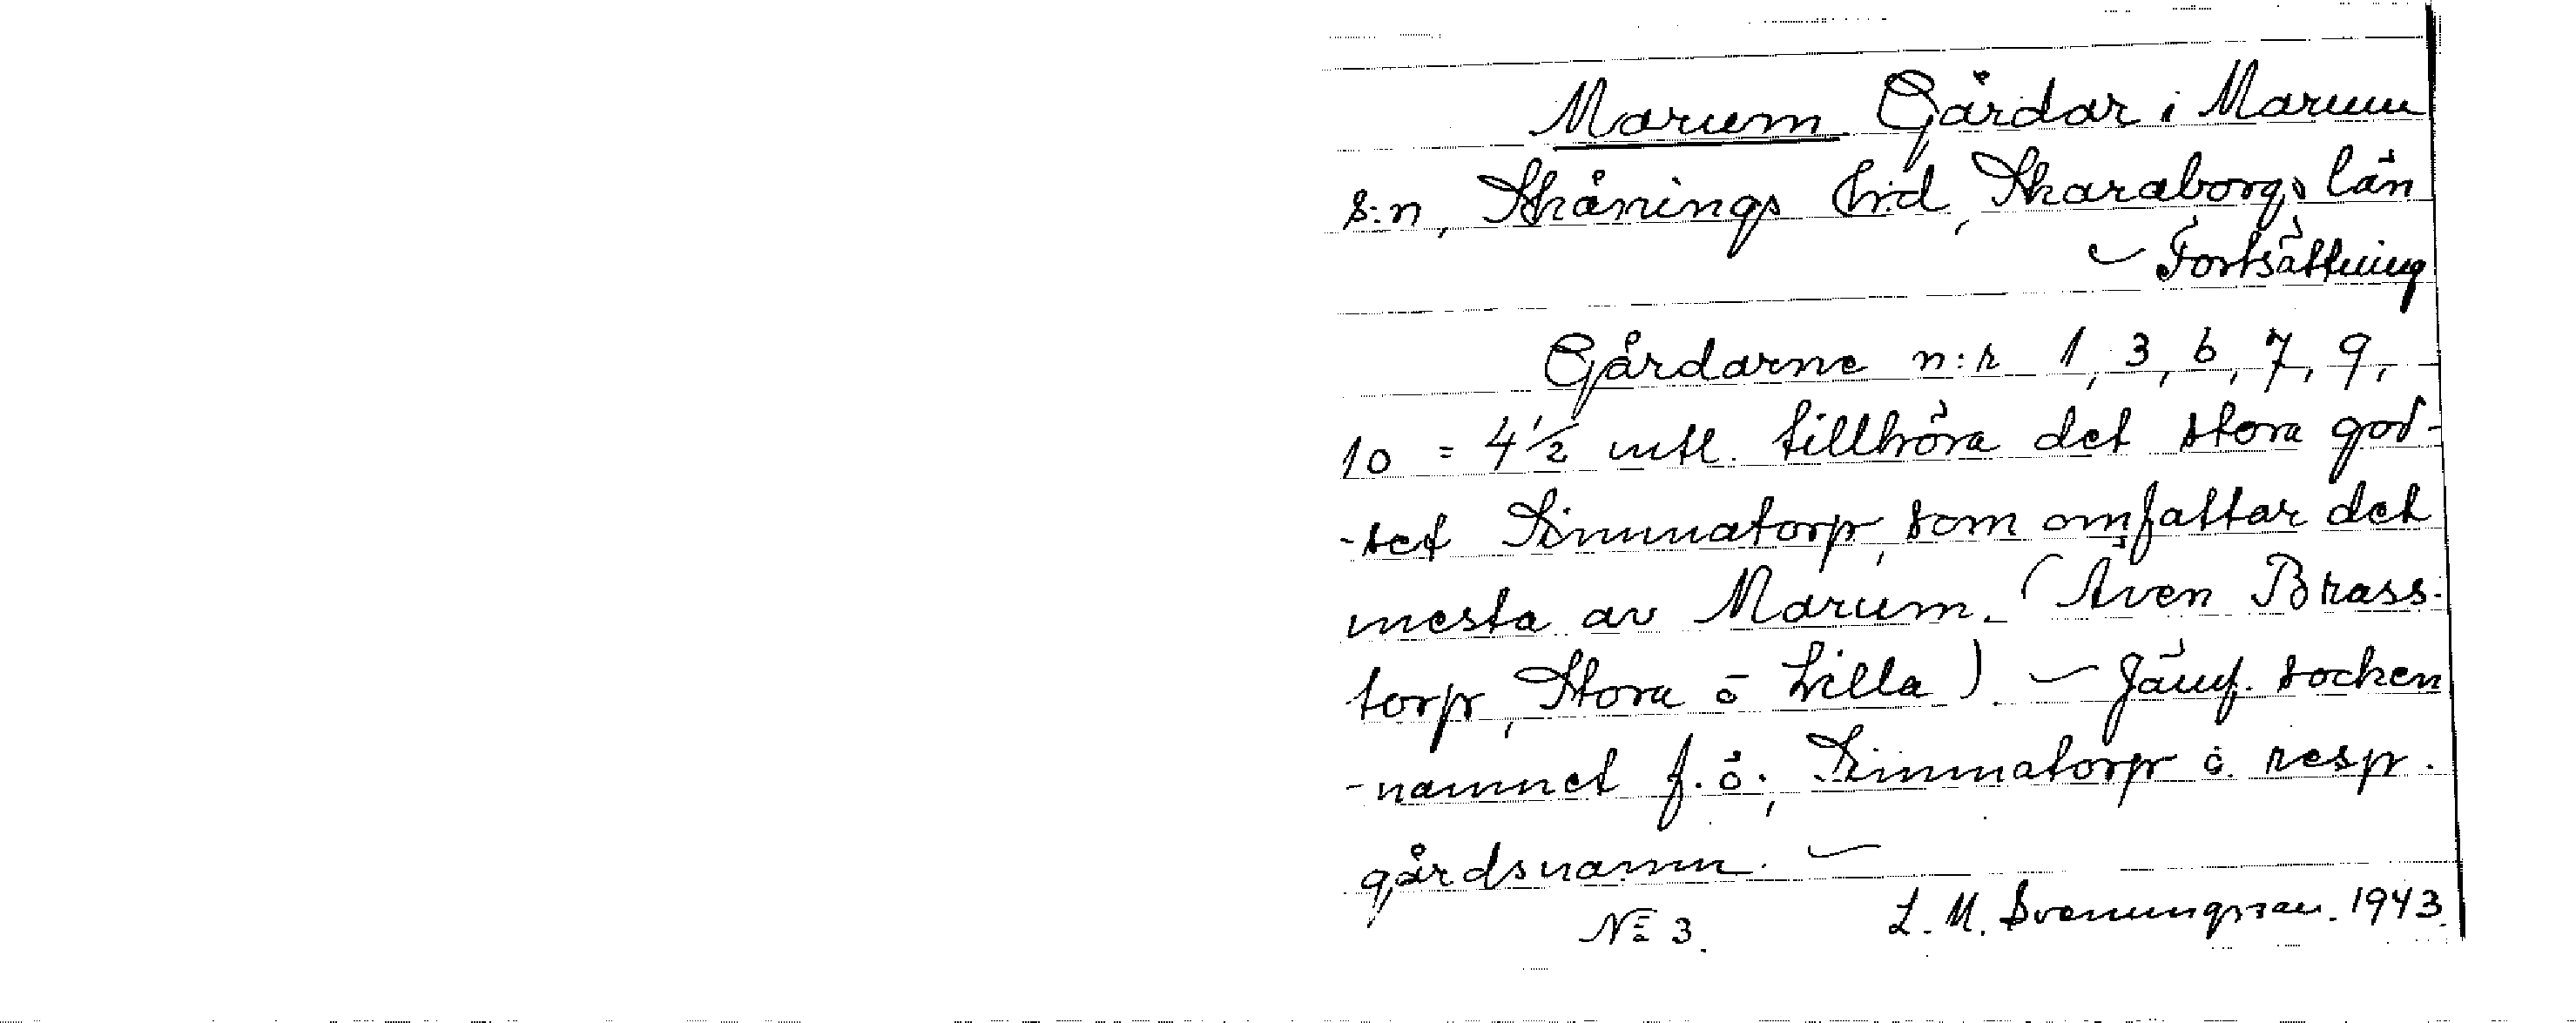 Marum Gårdar i Marum
s:n, Skånings hrd, Skaraborgs län
– Fortsättning
Gårdarne n:r 1, 3, 6, 7, 9,
10 = 4 1/2 mtl. tillhöra det stora god-
-set Simmatorp, som omfattar det
mesta av Marum. (Även Brass-
torp, Stora o Lilla) – Jämf. socken
-namnet f. ö.; Simmatorp o. resp.
gårdsnamn. –
No 3. L. M. Svenungsson. 1943.